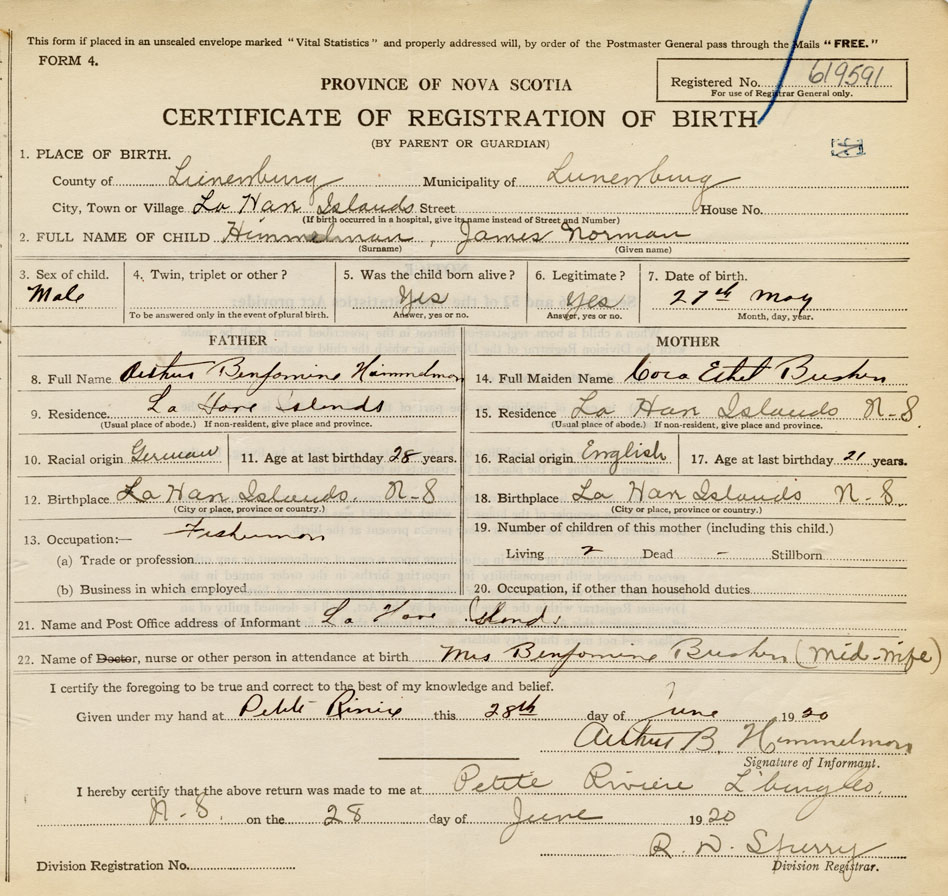 This form if placed in an unsealed envelope marked "Vital Statistics" and properly addressed will, by order of the Postmaster General pass through the Mails "FREE."
FORM 4.
Registered No. 619591
For use of Registrar General only.
PROVINCE OF NOVA SCOTIA
CERTIFICATE OF REGISTRATION OF BIRTH
(BY PARENT OR GUARDIAN)
1. PLACE OF BIRTH.
County of Lunenburg Municipality of Lunenburg
City, Town or Village La Have Islands Street House No.
(If birth occurred in a hospital, give its name instead of Street and Number)
2. FULL NAME OF CHILD Himmelman, James Norman
(Surname) (Given name)
3. Sex of child. 4. Twin, triplet or other? 5. Was the child born alive? 6. Legitimate? 7. Date of birth.
Male Yes Yes 27th May
To be answered only in the event of plural birth. Answer, yes or no. Answer, yes or no. Month, day, year.
FATHER MOTHER
8. Full Name Arthur Benjamine Himmelman 14. Full Maiden Name Cora Ethel Bushen
9. Residence. La Have Islands 15. Residence La Have Islands N-S.
(Usual place of abode.) If non-resident, give place and province. (Usual place of abode.) If non-resident, give place and province.
10. Racial origin German 11. Age at last birthday 28 years. 16. Racial origin English 17. Age at last birthday 21 years.
12. Birthplace La Have Islands. N-S 18. Birthplace La Have Islands N-S.
(City or place, province or country.) (City or place, province or country.)
13. Occupation:— Fisherman 19. Number of children of this mother (including this child.)
(a) Trade or profession Living 2 Dead - Stillborn
(b) Business in which employed 20. Occupation, if other than household duties
21. Name and Post Office address of Informant La Have Islands.
22. Name of Doctor, nurse or other person in attendance at birth Mrs Benjamine Bushen (Mid-Wife)
I certify the foregoing to be true and correct to the best of my knowledge and belief.
Given under my hand at Petite Riviere this 28th day of June 1920
Arthur B. Himmelman
Signature of Informant.
I hereby certify that the above return was made to me at Petite Riviere
N-S. on the 28 day of June 1920
R. D. Sperry
Division Registration No. Division Registrar.